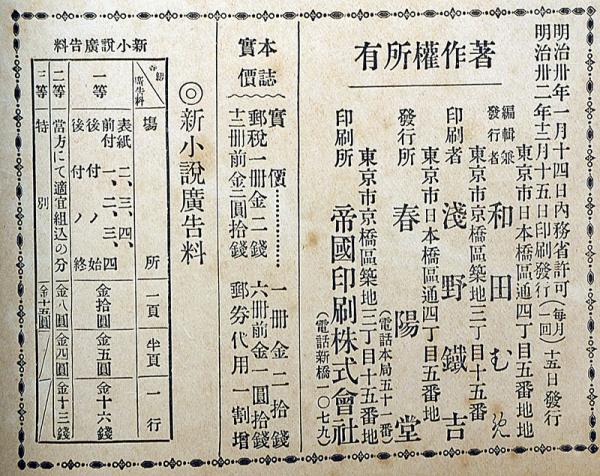 明治卅年一月十四日內務省許可(每月一回)十五日發行
明治卅二年十二月十五日印刷發行
著作權所有
東京市日本橋區通四丁目五番地
編輯兼發行者 和田むめ
東京市京橋區築地三丁目十五番地
印刷者 淺野鐵吉
東京市日本橋區通四丁目五番地
發行所 春陽堂
(電話本局五十一番)
東京市京橋區築地三丁目十五番地
印刷所 帝國印刷株式會社
(電話新橋一〇七九)
本誌實價
實價………一册金二拾錢
郵稅一册金二錢 六册前金一圓拾錢
十二册前金二圓拾錢 郵券代用一割增
◎新小說廣告料
新小說廣告料
等級 廣告料 塲所 一頁 半頁 一行
一等 表紙二、三、四、 前付一、二、三、四 後付ノ始 後付ノ終 金拾圓 金五圓 金十六錢
二等 當方にて適宜組込の分 金八圓 金四圓 金十三錢
三等 特別 金十五圓